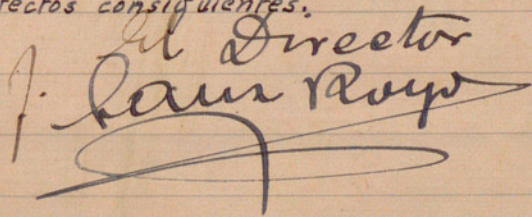 efectos consiguientes.
El Director
J. Sanz Royo